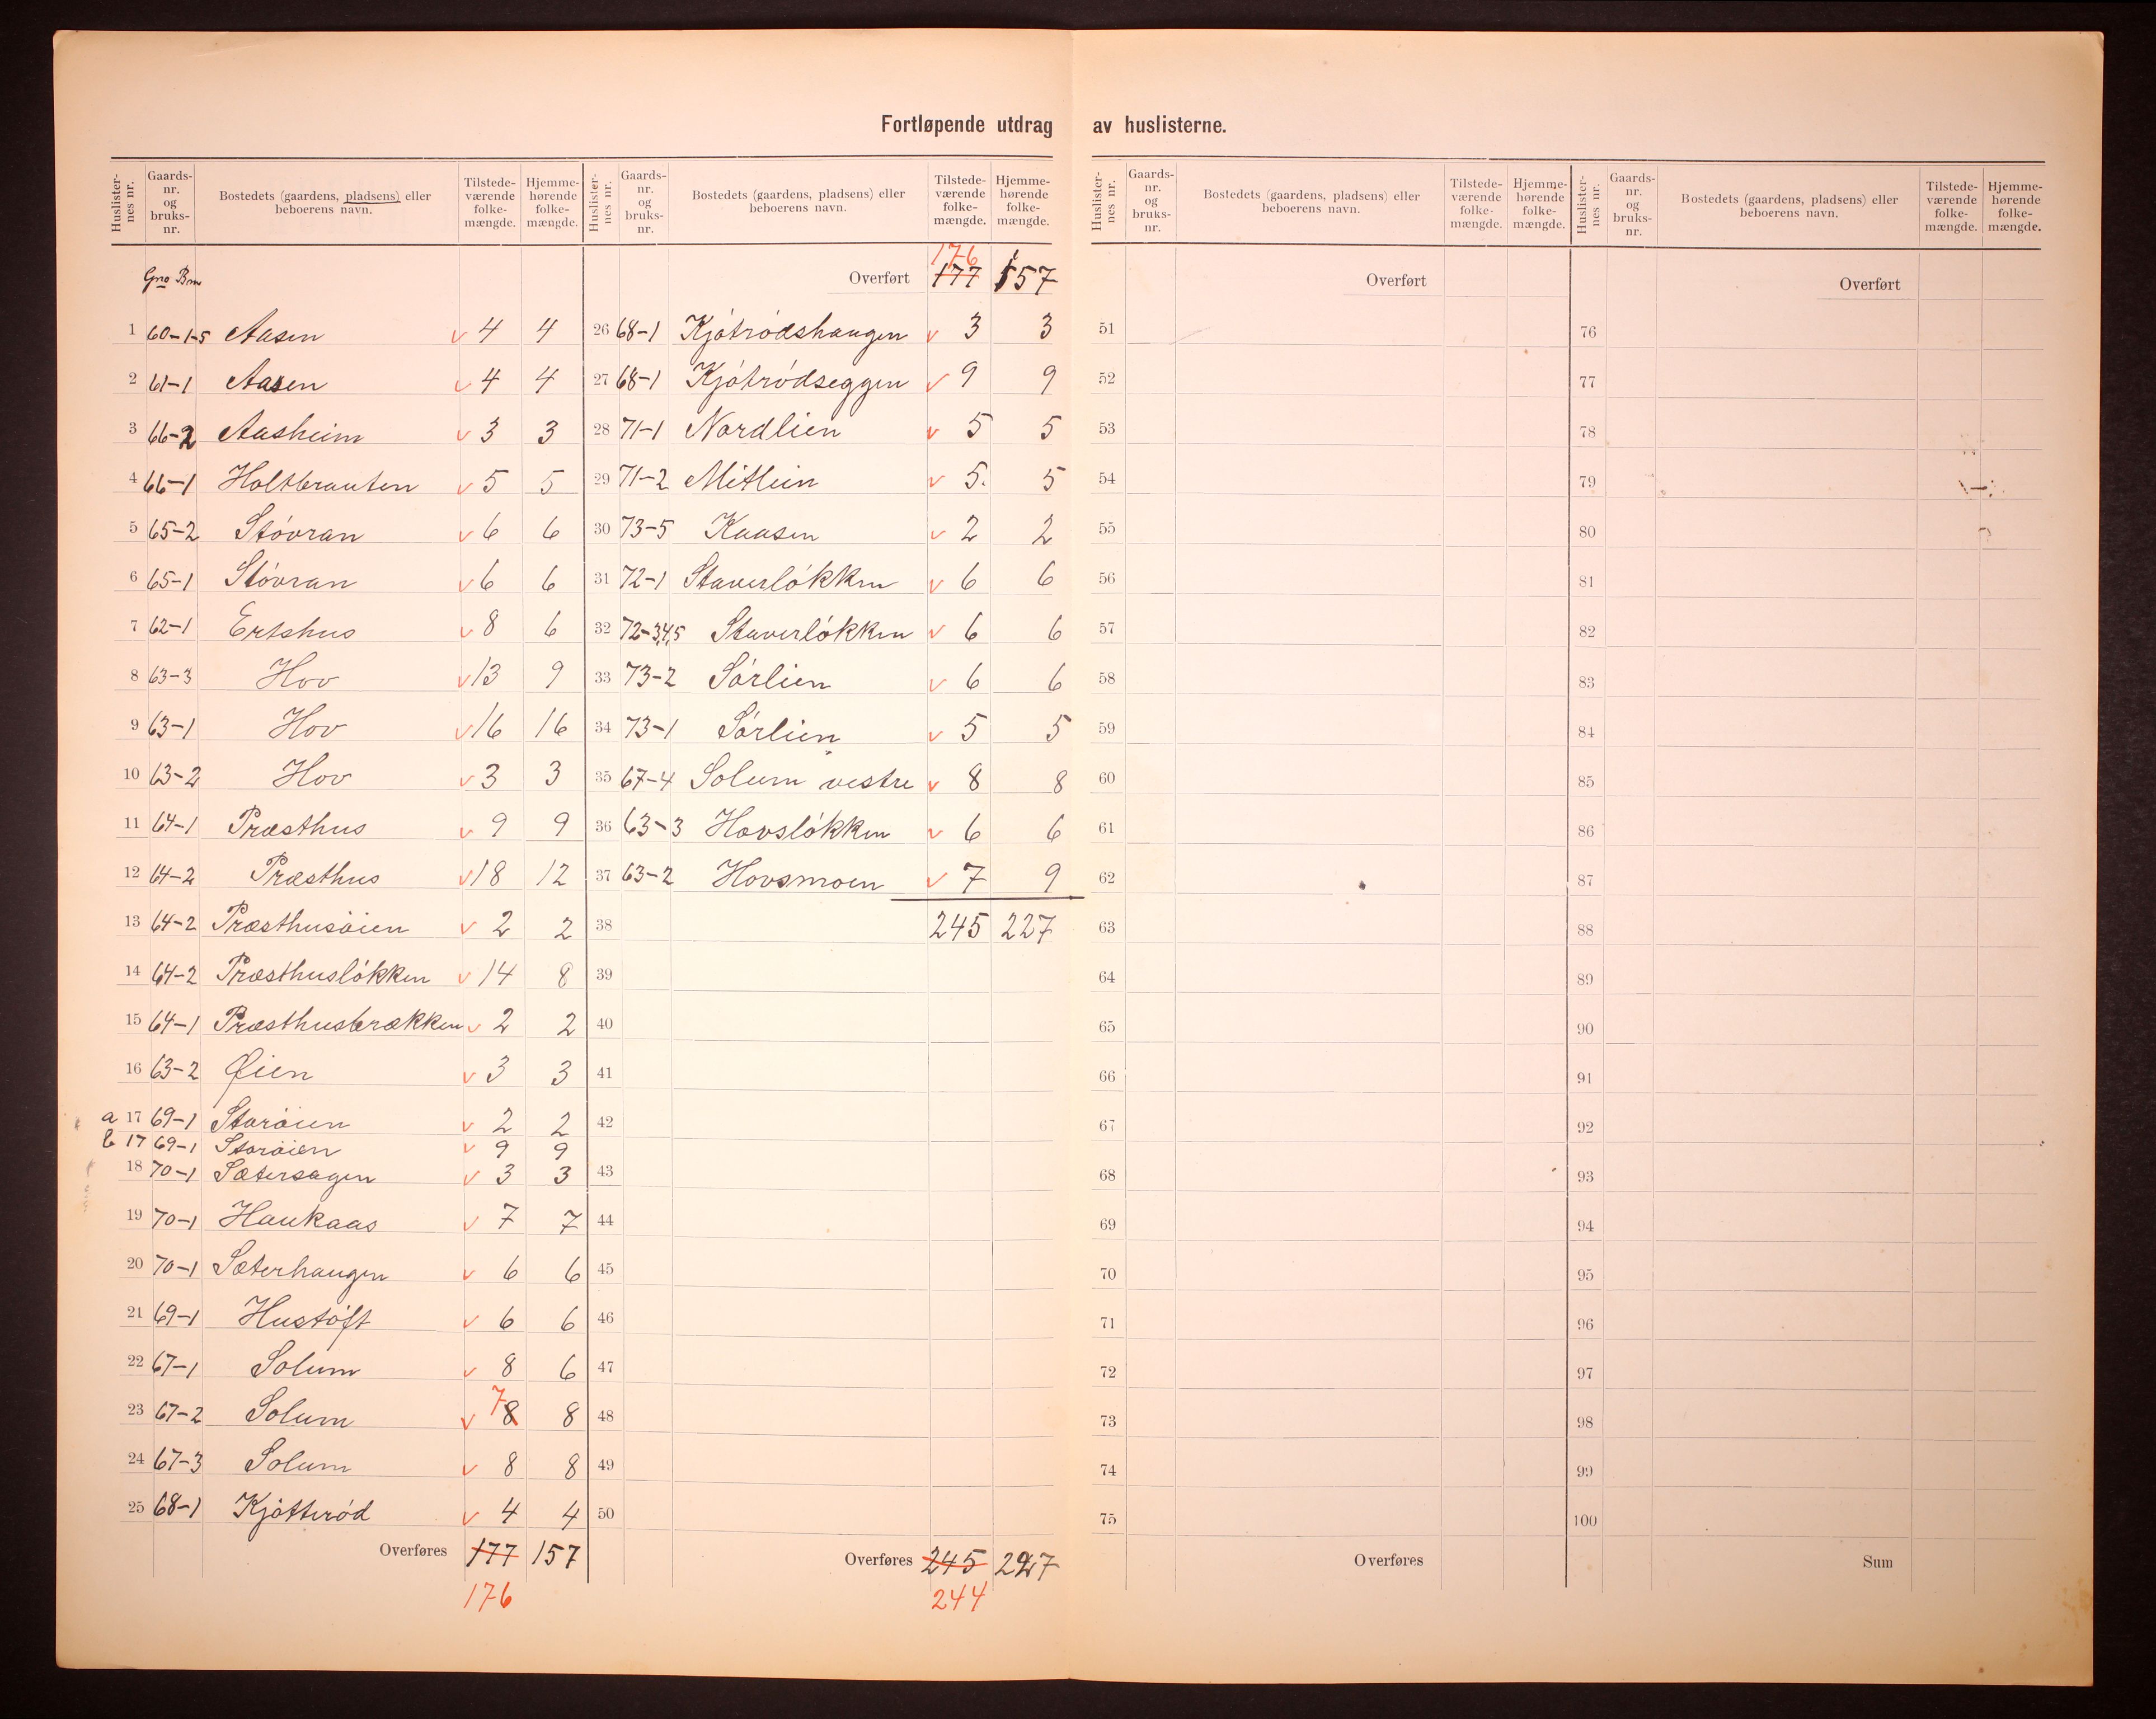 Fortløpende utdrag av huslisterne.
Huslister-nes nr. Gaards-nr. og bruks-nr. Bostedets (gaardens, pladsens) eller beboerens navn. Tilstede-værende folke-mængde. Hjemme-hørende folke-mængde.
Gno Bm
1 60-1-5 Aasen v 4 4
2 61-1 Aasen v 4 4
3 66-2 Aasheim v 3 3
4 66-1 Holtbrauten v 5 5
5 65-2 Støvran v 6 6
6 65-1 Støvran v 6 6
7 62-1 Ertshus v 8 6
8 63-3 Hov v 13 9
9 63-1 Hov v 16 16
10 63-2 Hov v 3 3
11 64-1 Præsthus v 9 9
12 64-2 Præsthus v 18 12
13 64-2 Præsthusøien v 2 2
14 64-2 Præsthusløkken v 14 8
15 64-1 Præsthusbrækken v 2 2
16 63-2 Øien v 3 3
a 17 69-1 Storøien v 2 2
b 17 69-1 Storøien v 9 9
18 70-1 Sætersagen v 3 3
19 70-1 Haukaas v 7 7
20 70-1 Sæterhaugen v 6 6
21 69-1 Hustøft v 6 6
22 67-1 Solum v 8 6
23 67-2 Solum v 7 8 8
24 67-3 Solum v 8 8
25 68-1 Kjøtterød v 4 4
Overføres 177 157
176
Huslister-nes nr. Gaards-nr. og bruks-nr. Bostedets (gaardens, pladsens) eller beboerens navn. Tilstede-værende folke-mængde. Hjemme-hørende folke-mængde.
176
Overført 177 157
26 68-1 Kjøtrødshaugen v 3 3
27 68-1 Kjøtrødseggen v 9 9
28 71-1 Nordlien v 5 5
29 71-2 Mitlien v 5. 5
30 73-5 Kaasen v 2 2
31 72-1 Staverløkken v 6 6
32 72-3,4,5 Staverløkken v 6 6
33 73-2 Sørlien v 6 6
34 73-1 Sørlien v 5 5
35 67-4 Solum vestre v 8 8
36 63-3 Hovsløkken v 6 6
37 63-2 Hovsmoen v 7 9
38 245 227
39
40
41
42
43
44
45
46
47
48
49
50
Overføres 245 227
244
Huslister-nes nr. Gaards-nr. og bruks-nr. Bostedets (gaardens, pladsens) eller beboerens navn. Tilstede-værende folke-mængde. Hjemme-hørende folke-mængde.
Overført
51
52
53
54
55
56
57
58
59
60
61
62
63
64
65
66
67
68
69
70
71
72
73
74
75
Overføres
Huslister-nes nr. Gaards-nr. og bruks-nr. Bostedets (gaardens, pladsens) eller beboerens navn. Tilstede-værende folke-mængde. Hjemme-hørende folke-mængde.
Overført
76
77
78
79
80
81
82
83
84
85
86
87
88
89
90
91
92
93
94
95
96
97
98
99
100
Sum